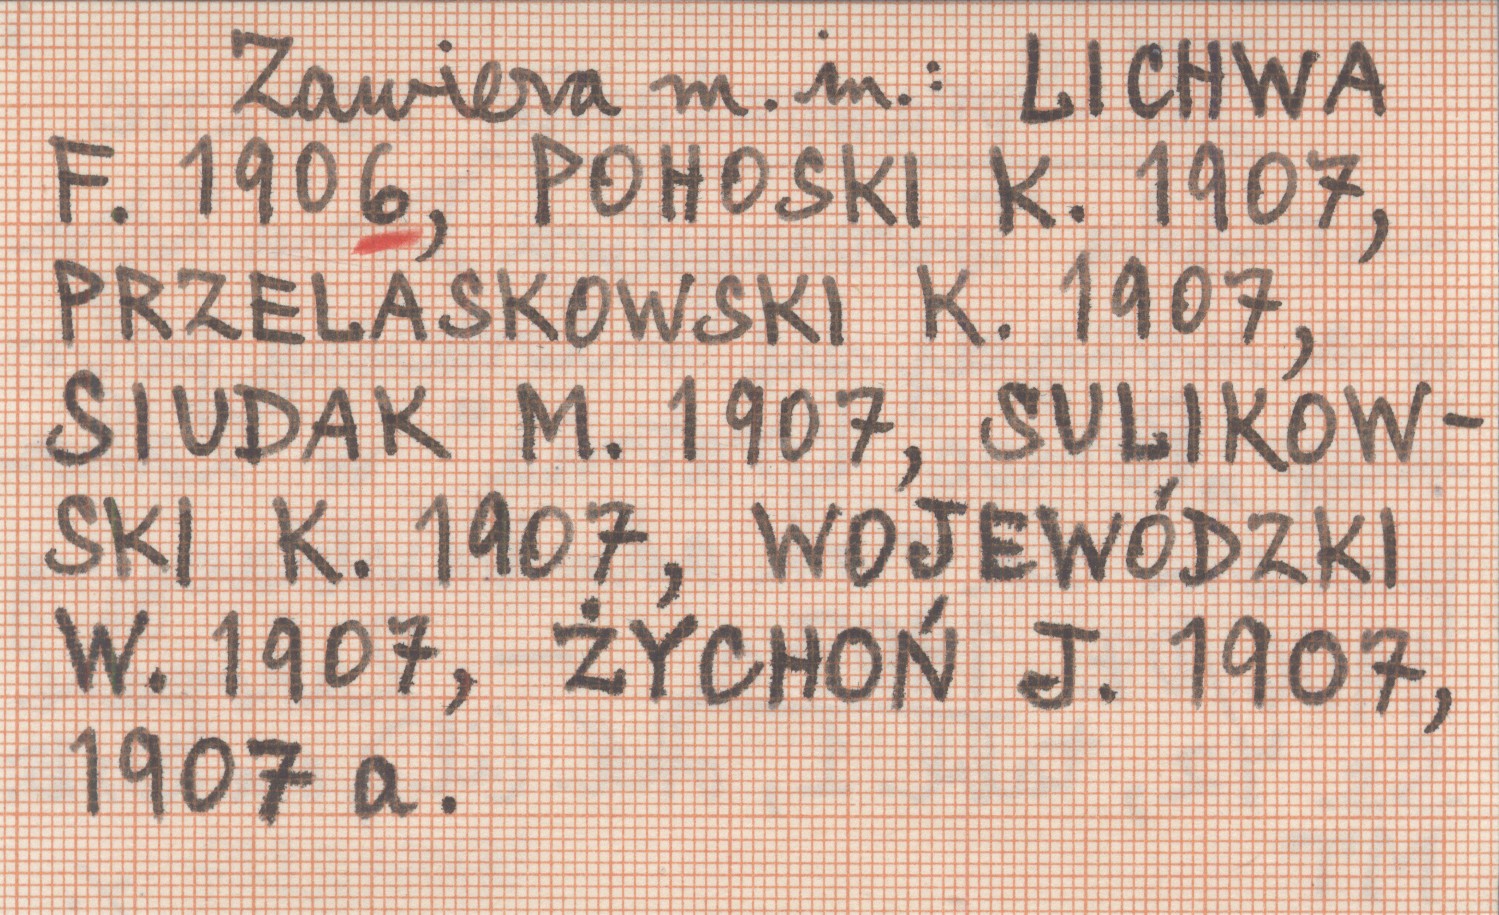 Zawiera m. in.: LICHWA
F. 1906, POHOSKI K. 1907,
PRZELASKOWSKI K. 1907,
SIUDAK M. 1907, SULIKOW-
SKI K. 1907, WOJEWÓDZKI
W. 1907, ŻYCHOŃ J. 1907,
1907 a.